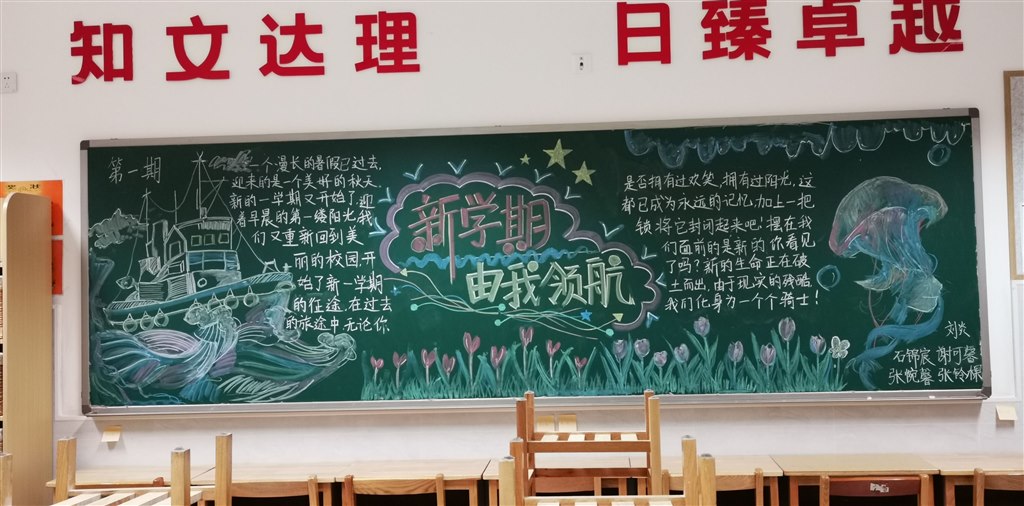 知文达理
日臻卓越
第一期
一个漫长的暑假已过去,
迎来的是一个美好的秋天,
新的一学期又开始了,迎
着早晨的第一缕阳光,我
们又重新回到美
丽的校园开
始了新一学期
的征途,在过去
的旅途中无论你
新学期
由我领航
是否拥有过欢笑,拥有过阳光,这
都已成为永远的记忆,加上一把
锁将它封闭起来吧!摆在我
们面前的是新的,你看见
了吗?新的生命正在破
土而出,由于现实的残酷,
我们化身为一个个骑士!
刘炎
石锦宸 谢可馨
张婉馨 张铃